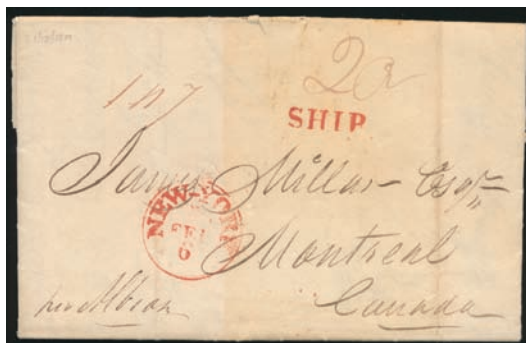 20
SHIP
James Millar Esqr
NEW-YORK
6
Montreal
Canada
per Albion